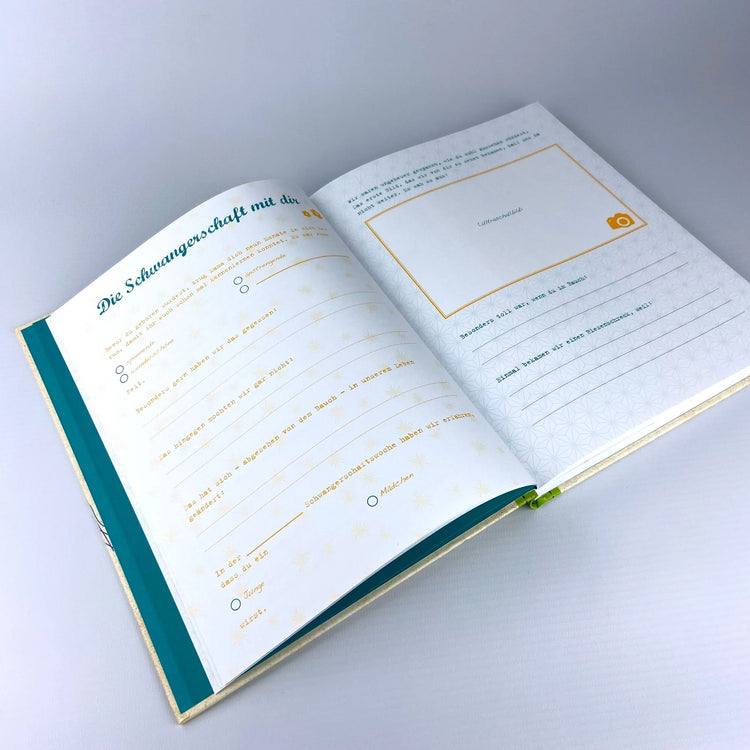 Die Schwangerschaft mit dir
Bevor du geboren wurdest, trug Mama dich neun Monate in sich
tun, damit ihr euch schon mal kennenlernen konntet. Es war eine
spannende
anstrengende
wunderschöne
Zeit.
Besonders gern haben wir da gegessen:
Das hingegen mochten wir gar nicht:
Das hat sich – abgesehen von dem Bauch – in unserem Leben
geändert:
In der Schwangerschaftswoche haben wir erfahren,
dass du ein
Junge
Mädchen
wirst.
Wir waren ungeheuer gespannt, wie du wohl aussehen würdest,
Das erste Bild, das wir von dir zu sehen bekamen, ließ uns es
nicht weiter. So sah es aus:
Ultraschallbild
Besonders toll war, wenn du im Bauch:
Einmal bekamen wir einen Riesenschreck, weil: